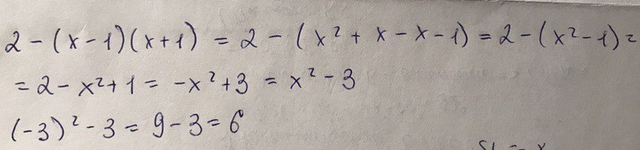 2 - (x - 1)(x + 1) = 2 - (x² + x - x - 1) = 2 - (x² - 1) =
= 2 - x² + 1 = -x² + 3 = x² - 3
(-3)² - 3 = 9 - 3 = 6